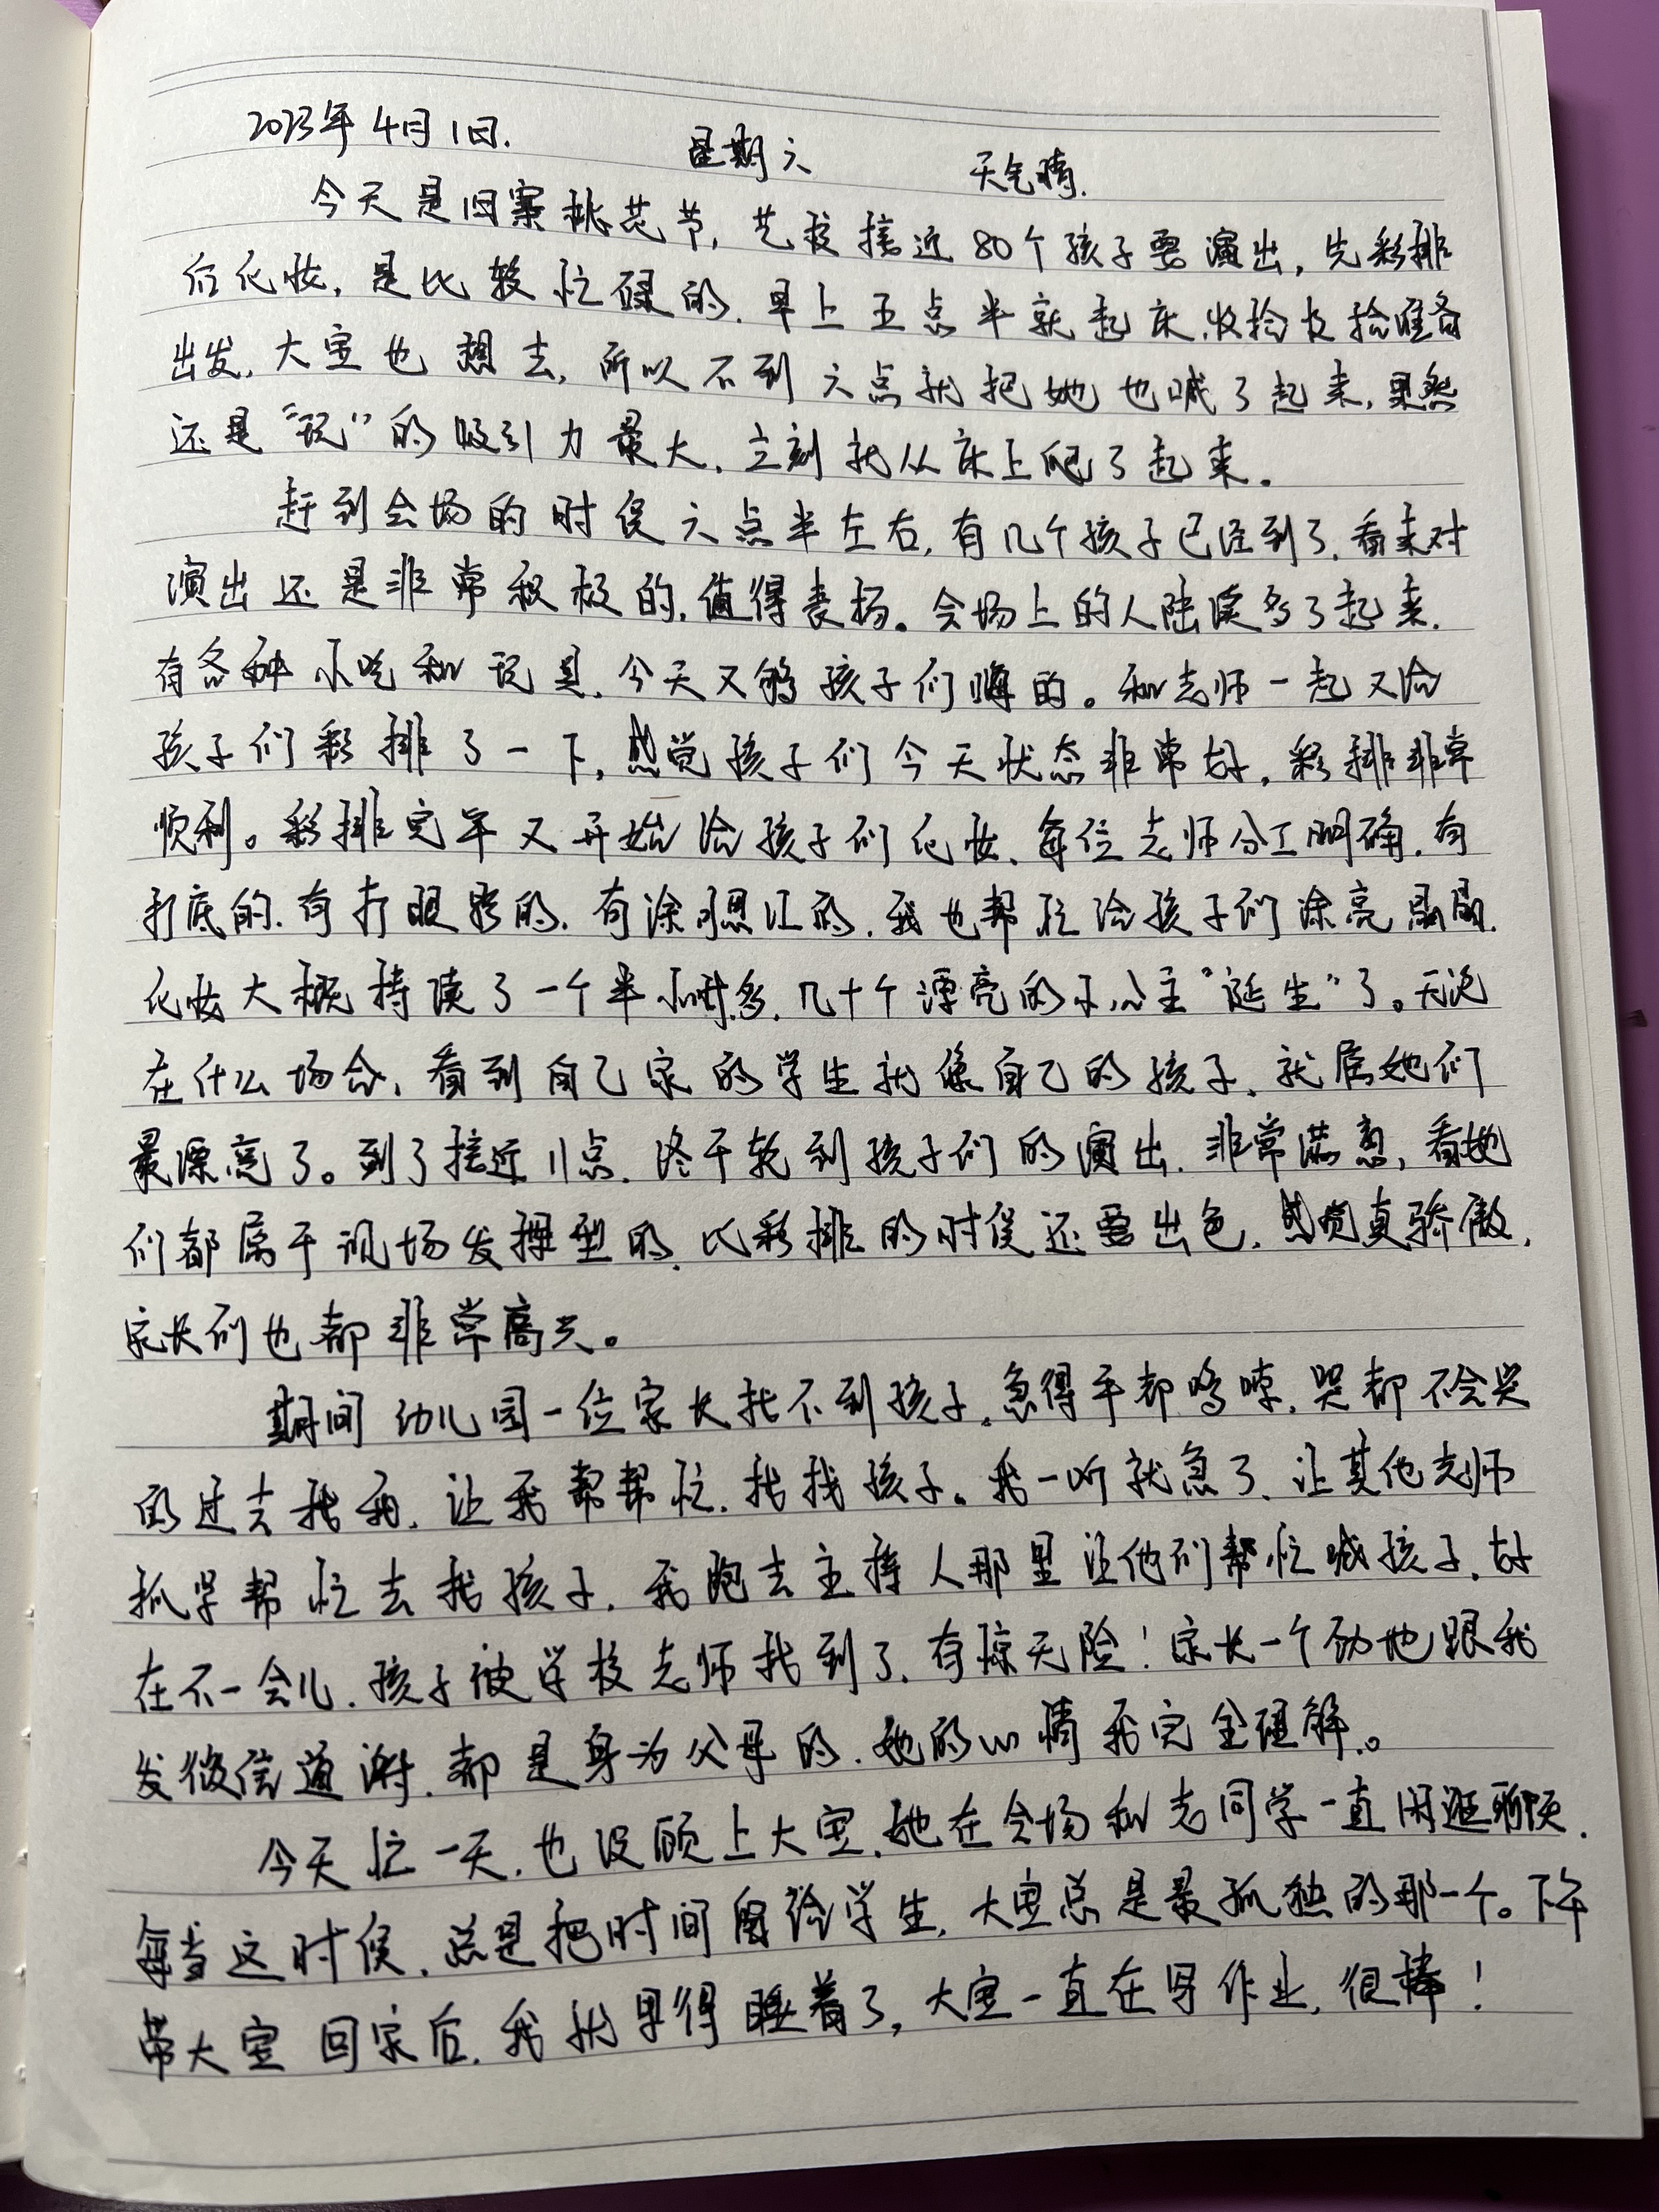 2023年4月1日. 星期六 天气晴.
今天是旧寨桃花节, 艺校接近80个孩子要演出, 先彩排
后化妆, 是比较忙碌的. 早上五点半就起床, 收拾收拾准备
出发. 大宝也想去, 所以不到六点就把她也喊了起来, 果然
还是“玩”的吸引力最大, 立刻就从床上爬了起来。
赶到会场的时候六点半左右, 有几个孩子已经到了, 看来对
演出还是非常积极的, 值得表扬。会场上的人陆续多了起来.
有各种小吃和玩具, 今天又够孩子们嗨的。和老师一起又给
孩子们彩排了一下, 感觉孩子们今天状态非常好, 彩排非常
顺利。彩排完毕又开始给孩子们化妆, 每位老师分工明确, 有
打底的, 有打眼影的, 有涂腮红的, 我也帮忙给孩子们涂亮晶晶.
化妆大概持续了一个半小时多, 几十个漂亮的小公主“诞生”了。无论
在什么场合, 看到自己家的学生就像自己的孩子, 就属她们
最漂亮了。到了接近11点, 终于轮到孩子们的演出, 非常满意, 看她
们都属于现场发挥型的, 比彩排的时候还要出色, 感觉真骄傲,
家长们也都非常高兴。
期间幼儿园一位家长找不到孩子, 急得手都哆嗦, 哭都不会哭
的过去找我, 让我帮帮忙, 找找孩子。我一听就急了, 让其他老师
抓紧帮忙去找孩子, 我跑去主持人那里让他们帮忙喊孩子, 好
在不一会儿, 孩子被学校老师找到了, 有惊无险! 家长一个劲地跟我
发微信道谢, 都是身为父母的, 她的心情我完全理解。
今天忙一天, 也没顾上大宝, 她在会场和老同学一直闲逛聊天.
每当这时候, 总是把时间留给学生, 大宝总是最孤独的那一个。下午
带大宝回家后, 我就累得睡着了, 大宝一直在写作业, 很棒!